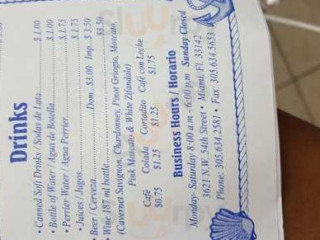 Drinks
• Canned Soft Drinks / Sodas de Lata $1.00
• Bottle of Water / Agua de Botella $1.00
• Perrier Water / Agua Perrier $1.75
• Juices / Jugos $1.75
• Beer / Cerveza Dom. $3.00 Imp. $3.50
• Wine 187 ml bottle $5.50
(Cavernet Sauvignon, Chardonney, Pinot Griogio, Moscato,
Pink Moscato & White Zifandale)
Café Colada Cortadito Café con Leche
$0.75 $1.25 $1.25 $1.75
Business Hours / Horario
Monday- Saturday 8:00 a.m - 6:00 p.m Sunday Closed
3621 N.W. 34th Street • Miami, Fl. 33142
Phone: 305.634.2581 • Fax: 305.634.5653